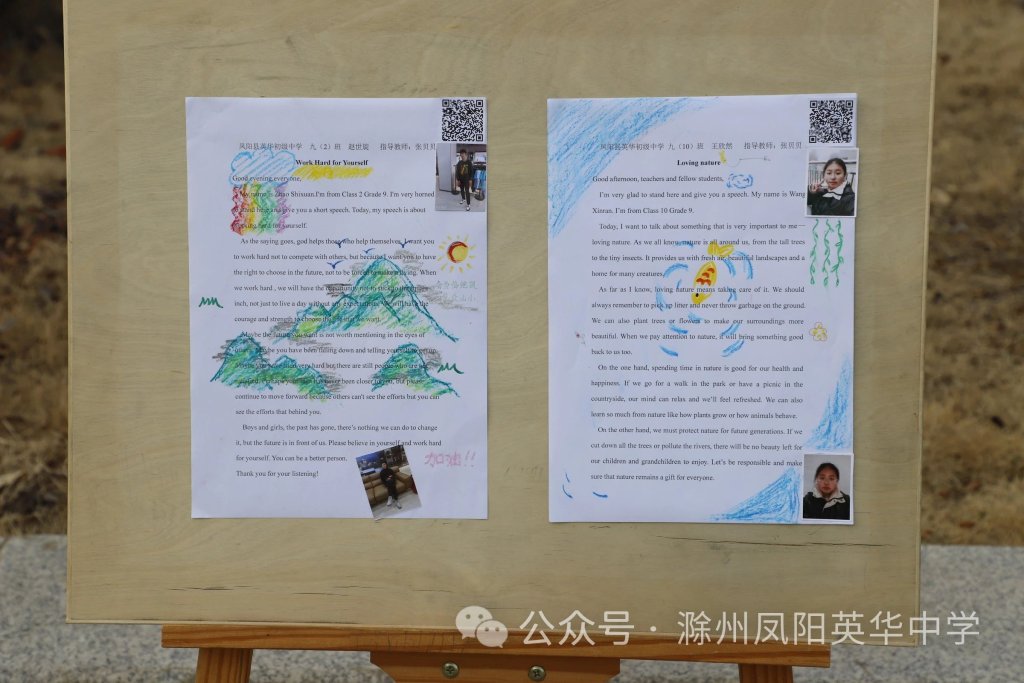 凤阳县英华初级中学 九（2）班 赵世旋 指导教师：张贝贝
Work Hard for Yourself
Good evening everyone.
My name is Zhao Shixuan.I'm from Class 2 Grade 9. I'm very horned
stand here and give you a short speech. Today, my speech is about
working hard for yourself.
As the saying goes, god helps those who help themselves. I want you
to work hard not to compete with others, but because I want you to have
the right to choose in the future, not to be forced to make a living. When
we work hard , we will have the opportunity not to
inch, not just to live a day without any expectations. We will have the
courage and strength to choose the life that we want.
Maybe the future you want is not worth mentioning in the eyes of
others, maybe you have been falling down and telling yourself to get up.
Maybe you have tried very hard but there are still people who are not
satisfied. Perhaps your has never been closer to you, but please
continue to move forward because others can't see the efforts but you can
see the efforts that behind you.
Boys and girls, the past has gone, there's nothing we can do to change
it, but the future is in front of us. Please believe in yourself and work hard
for yourself. You can be a better person.
Thank you for your listening!
加油!!
凤阳县英华初级中学 九（10）班 王欣然 指导教师：张贝贝
Loving nature
Good afternoon, teachers and fellow students,
I'm very glad to stand here and give you a speech. My name is Wang
Xinran. I'm from Class 10 Grade 9.
Today, I want to talk about something that is very important to me—
loving nature. As we all know, nature is all around us, from the tall trees
to the tiny insects. It provides us with fresh air, beautiful landscapes and a
home for many creatures.
As far as I know, loving nature means taking care of it. We should
always remember to pick up litter and never throw garbage on the ground.
We can also plant trees or flowers to make our surroundings more
beautiful. When we pay attention to nature, it will bring something good
back to us too.
On the one hand, spending time in nature is good for our health and
happiness. If we go for a walk in the park or have a picnic in the
countryside, our mind can relax and we'll feel refreshed. We can also
learn so much from nature like how plants grow or how animals behave.
On the other hand, we must protect nature for future generations. If we
cut down all the trees or pollute the rivers, there will be no beauty left for
our children and grandchildren to enjoy. Let's be responsible and make
sure that nature remains a gift for everyone.
公众号 · 滁州凤阳英华中学